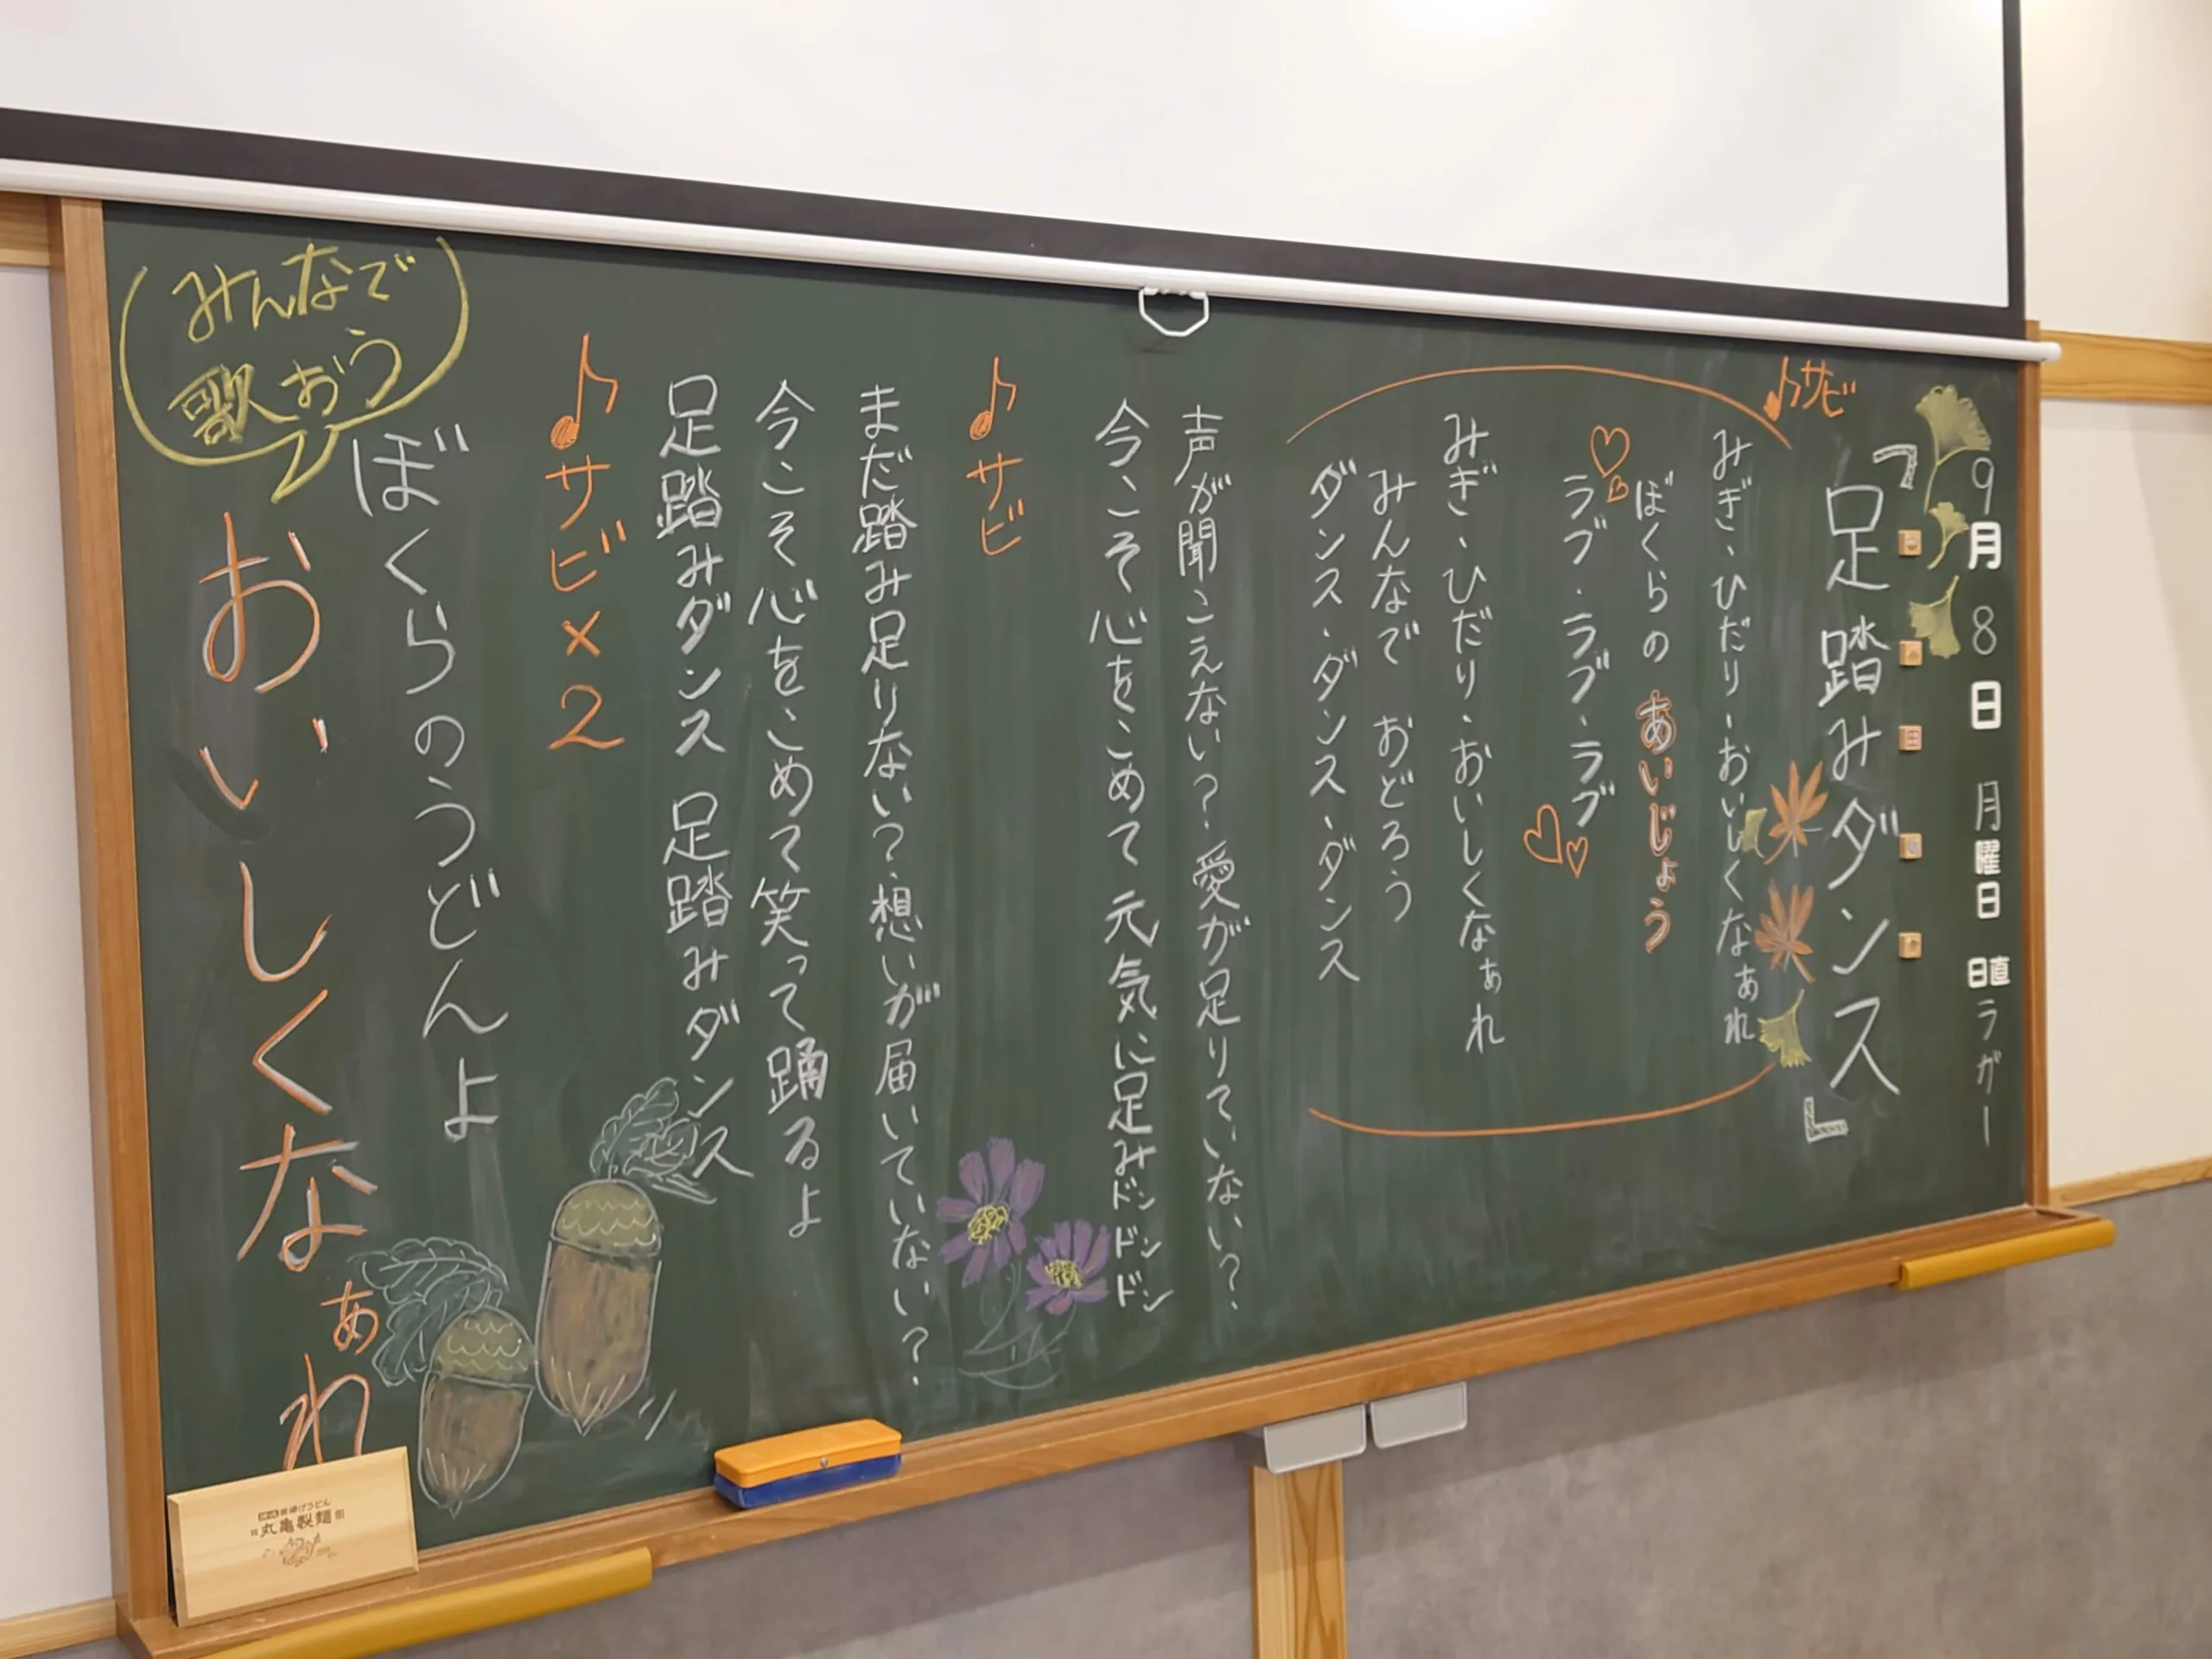 9月8日 月曜日 日直 ラガー
「足踏みダンス」
♪サビ
みぎ、ひだり、おいしくなぁれ
ぼくらの あいじょう
ラブ・ラブ・ラブ
みぎ、ひだり、おいしくなぁれ
みんなで おどろう
ダンス、ダンス、ダンス
声が聞こえない?愛が足りていない?
今こそ心をこめて元気に足みドンドンドン
♪サビ
まだ踏み足りない?想いが届いていない?
今こそ心をこめて笑って踊るよ
足踏みダンス 足踏みダンス
♪サビ×2
ぼくらのうどんよ
おいしくなぁれ
みんなで
歌おう
釜揚げうどん
丸亀製麺